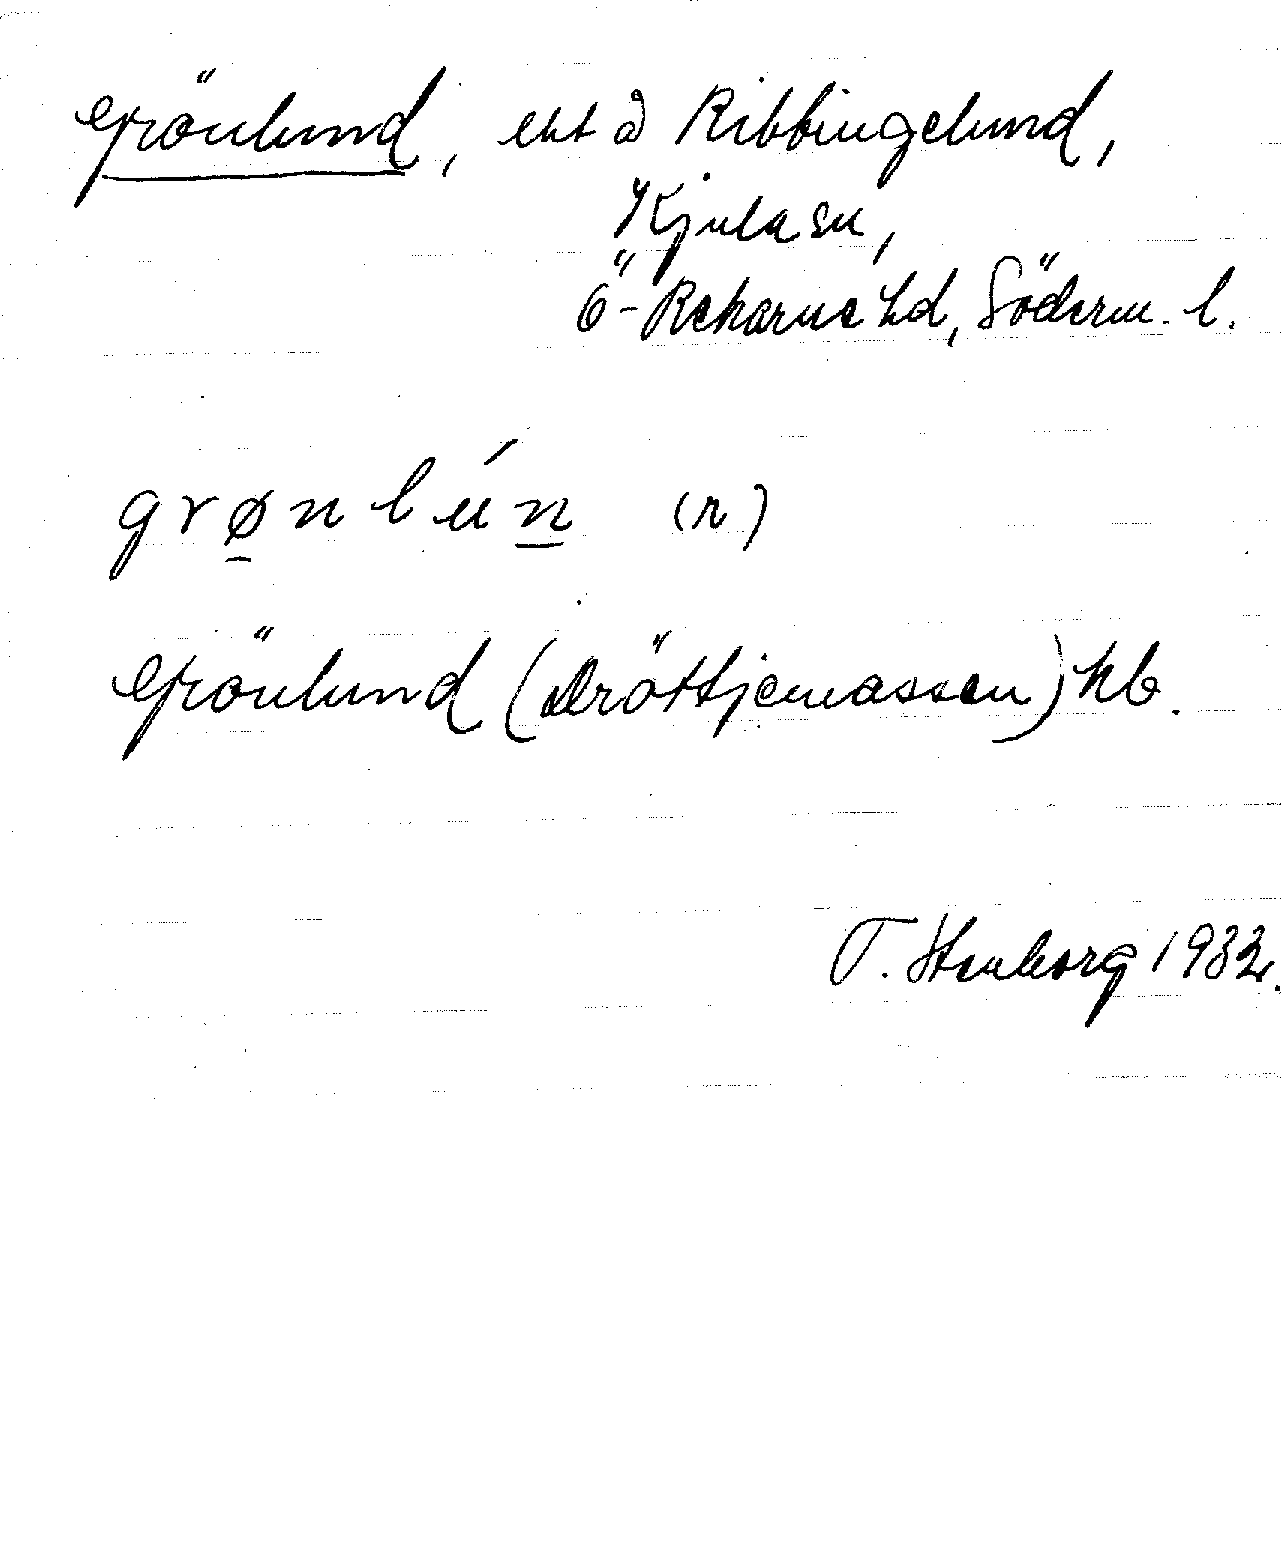 Grönlund, ext å Ribbingelund,
Kjula sn,
Ö-Rekarne hd, Söderm. l.
grønlún (n)
Grönlund (Dröttjemossen) kb.
T. Stenborg 1932.